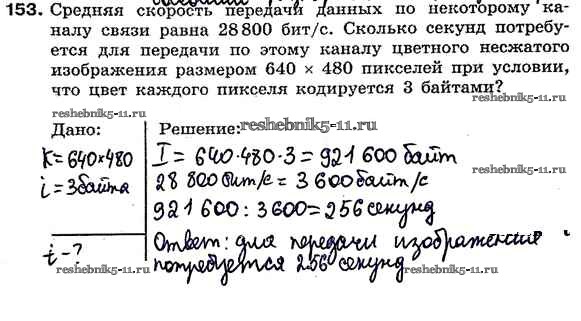 153. Средняя скорость передачи данных по некоторому ка-
налу связи равна 28 800 бит/с. Сколько секунд потребу-
ется для передачи по этому каналу цветного несжатого
изображения размером 640 × 480 пикселей при условии,
что цвет каждого пикселя кодируется 3 байтами?
reshebnik5-11.ru
reshebnik5-11.ru
Дано:
K=640·480
i=3байта
i-?
reshebnik5-11.ru
Решение:
reshebnik5-11.ru
I=640·480·3=921 600 байт
28 800 бит/с=3 600 байт/с
921 600 : 3600=256 секунд
Ответ: для передачи изображения
потребуется 256 секунд
reshebnik5-11.ru
reshebnik5-11.ru